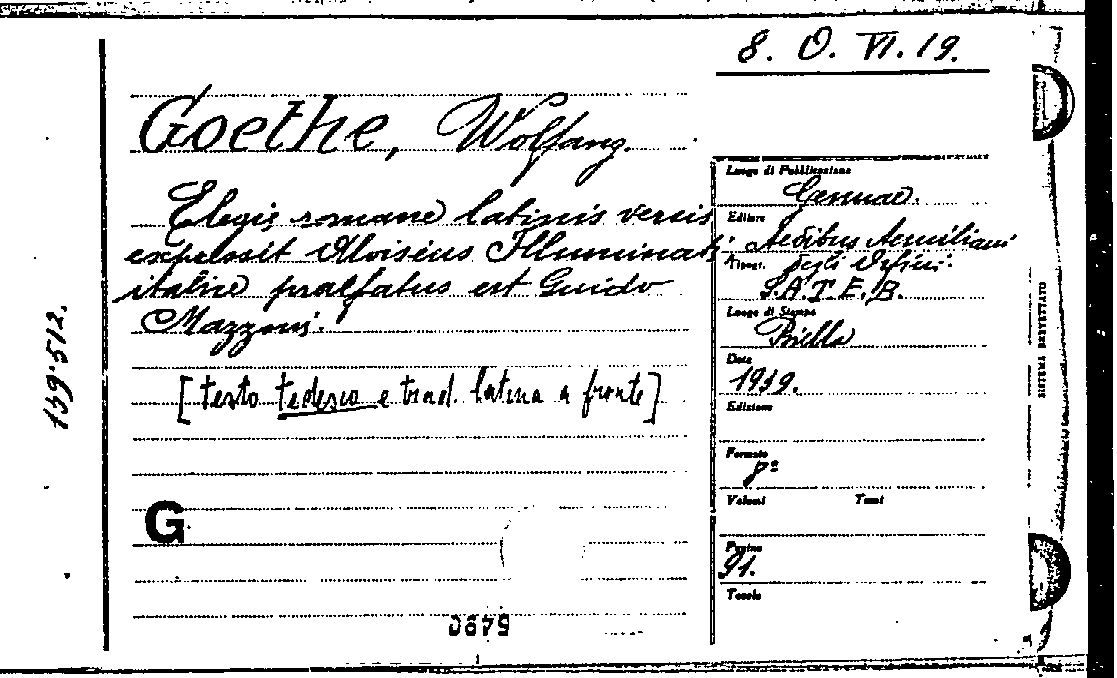 8. O. VI. 19.
Goethe, Wolfang.
Elegie romane latinis versis
expressit Aloisius Illuminati
italice praefatus est Guido
Mazzoni.
[testo tedesco e trad. latina a fronte]
G
Luogo di Pubblicazione
Genuae.
Editore
Aedibus Aemiliani
Tipogr. degli Orfini.
S.A.T.E.B.
Luogo di Stampa
Biella
Data
1939.
Edizione
Formato
8º
Volumi Tomi
Pagine
91.
Tavole
139.512.
SISTEMA BREVETTATO